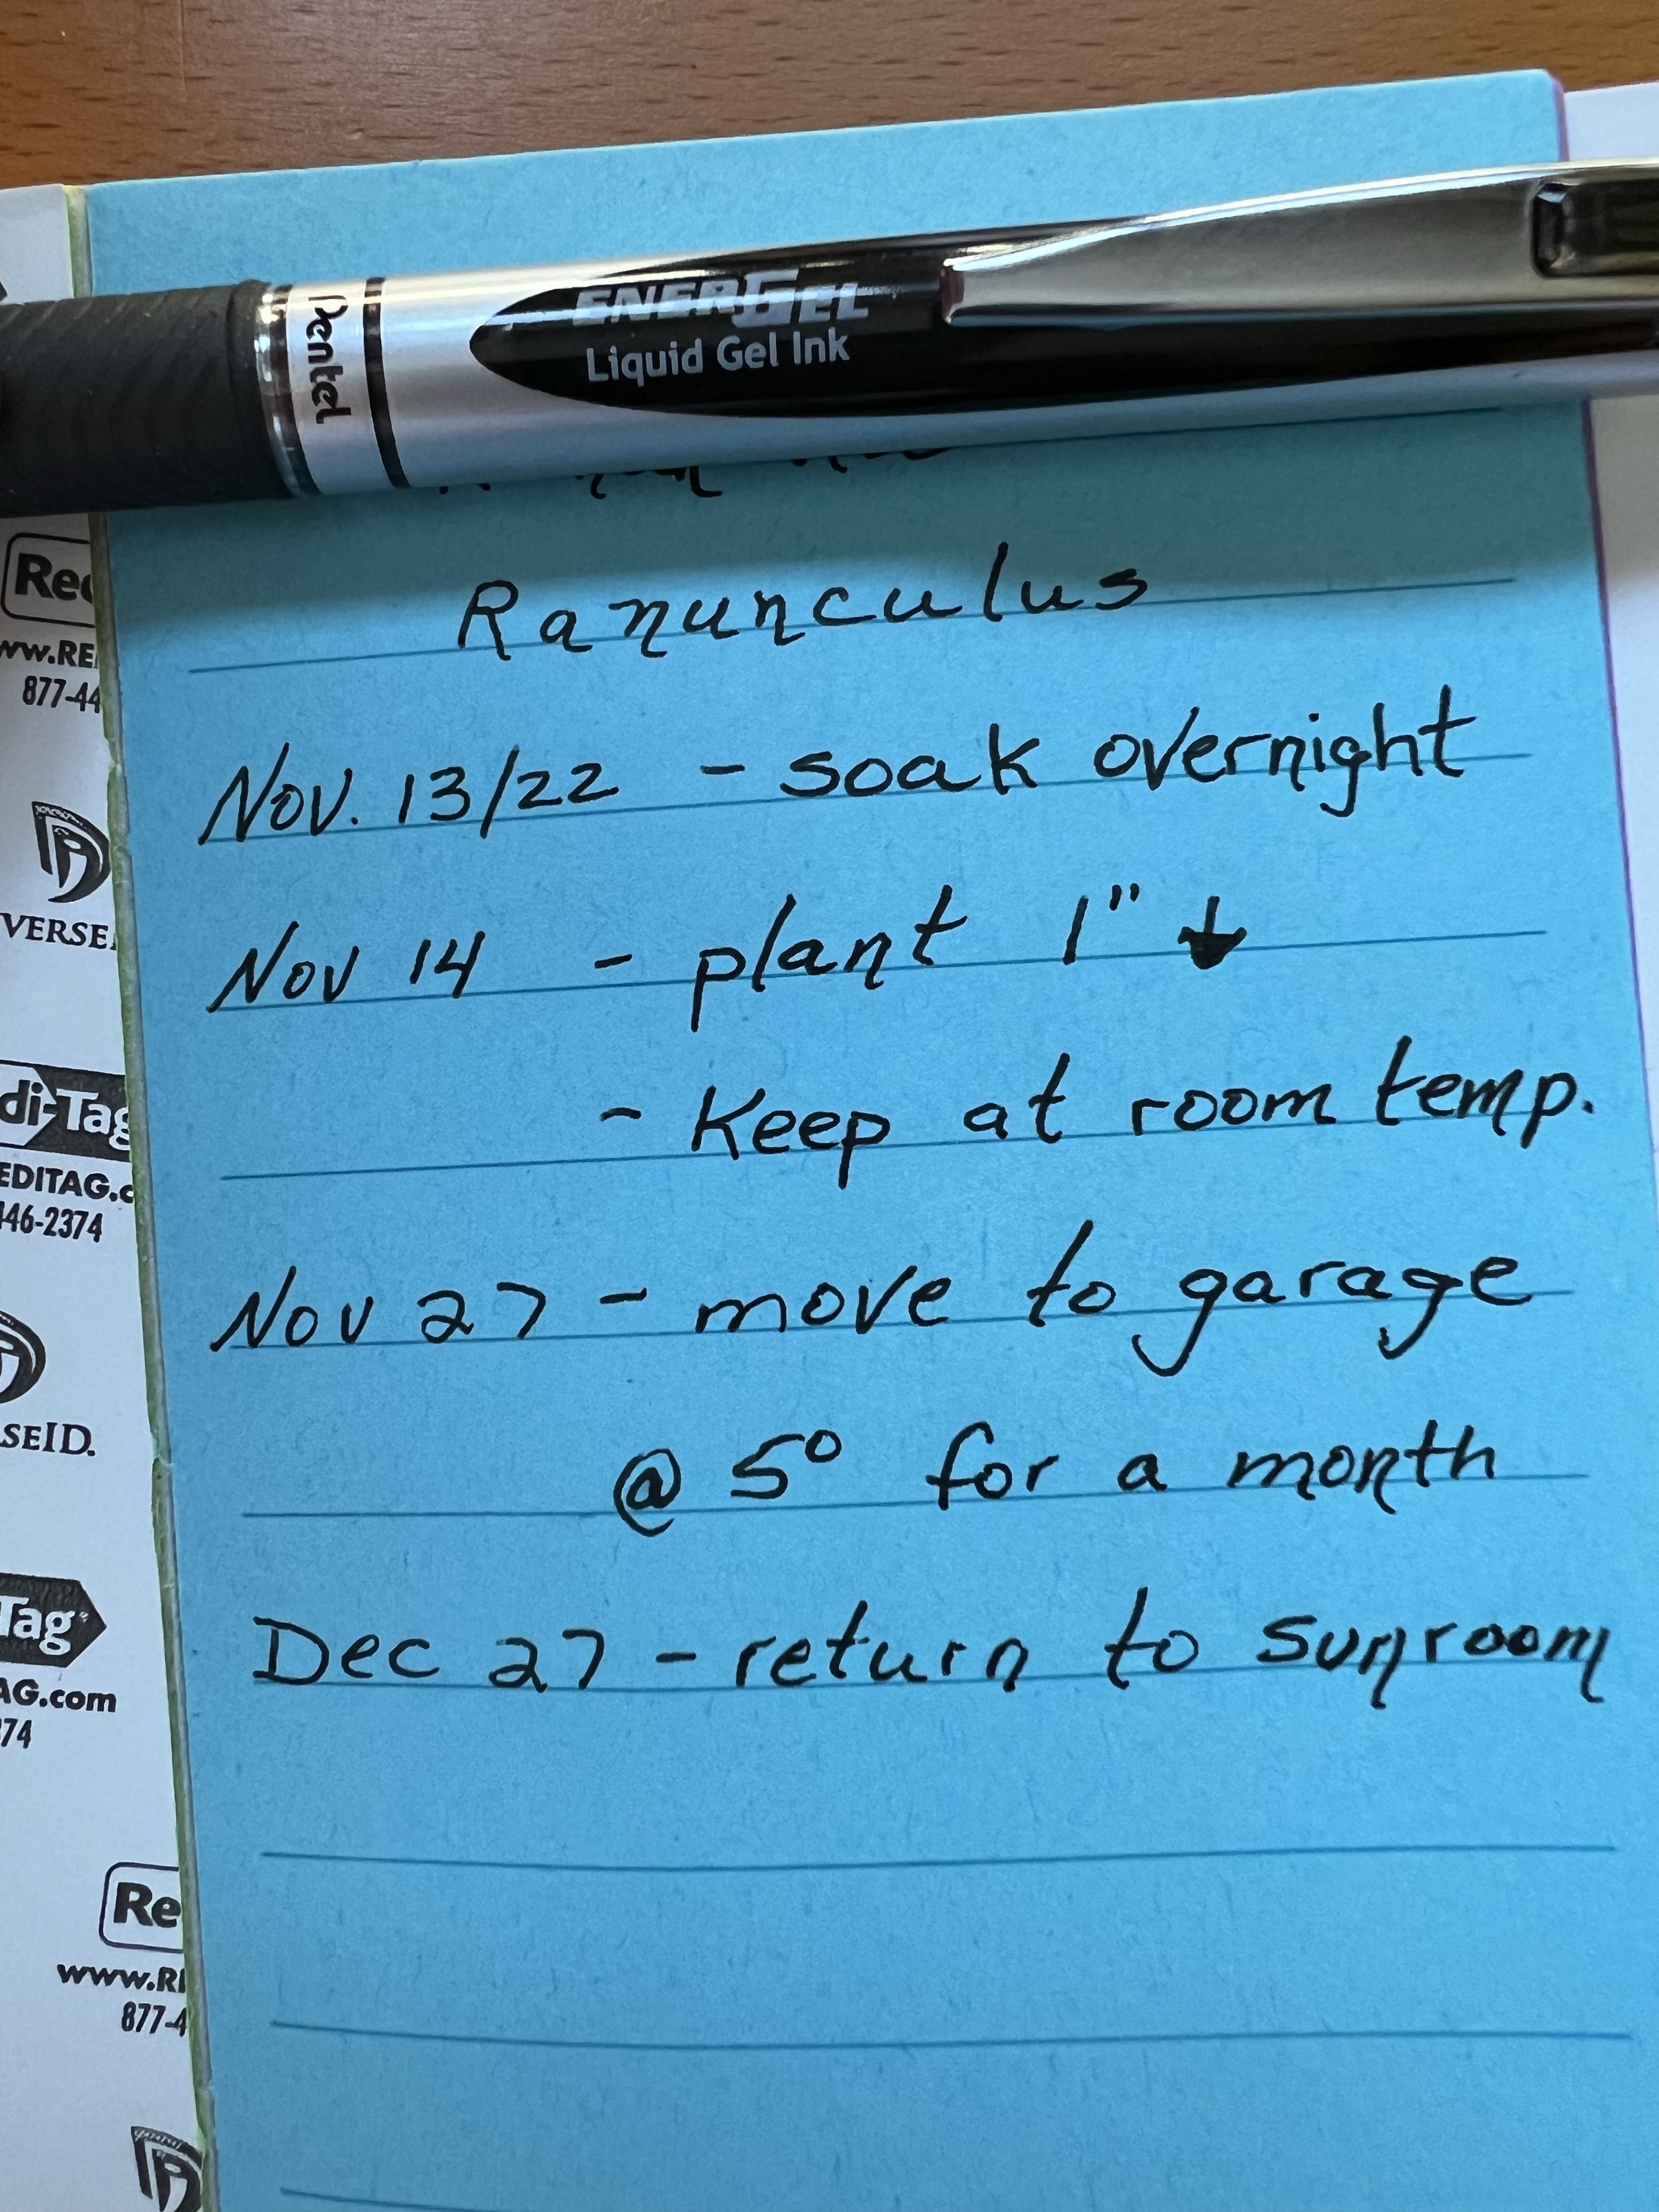 Pentel
ENERGEL
Liquid Gel Ink
Ranunculus
Nov. 13/22 - soak overnight
Nov 14 - plant 1" ↓
- Keep at room temp.
Nov 27 - move to garage
@ 5° for a month
Dec 27 - return to sunroom
Rec
ww.RE
877-44
VERSE
di-Tag
EDITAG.c
446-2374
SEID.
Tag
AG.com
374
Re
www.RE
877-4